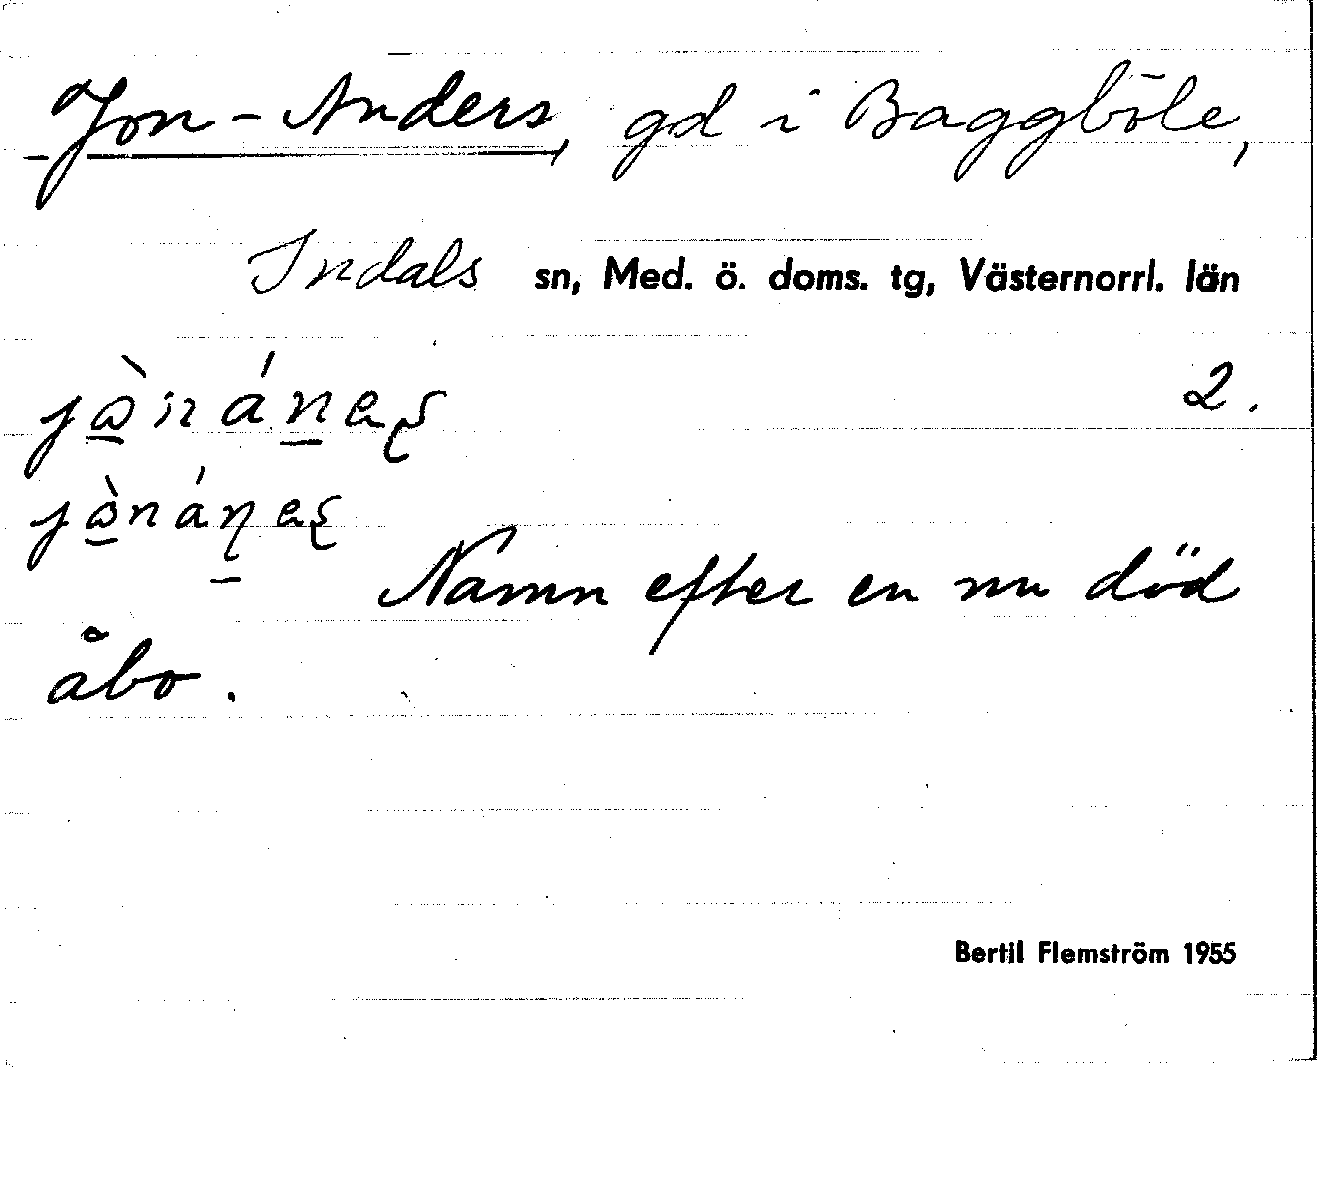 Jon-Anders, gd i Baggböle,
Indals sn, Med. ö. doms. tg, Västernorrl. län
2.
Namn efter en nu död
åbo.
Bertil Flemström 1955